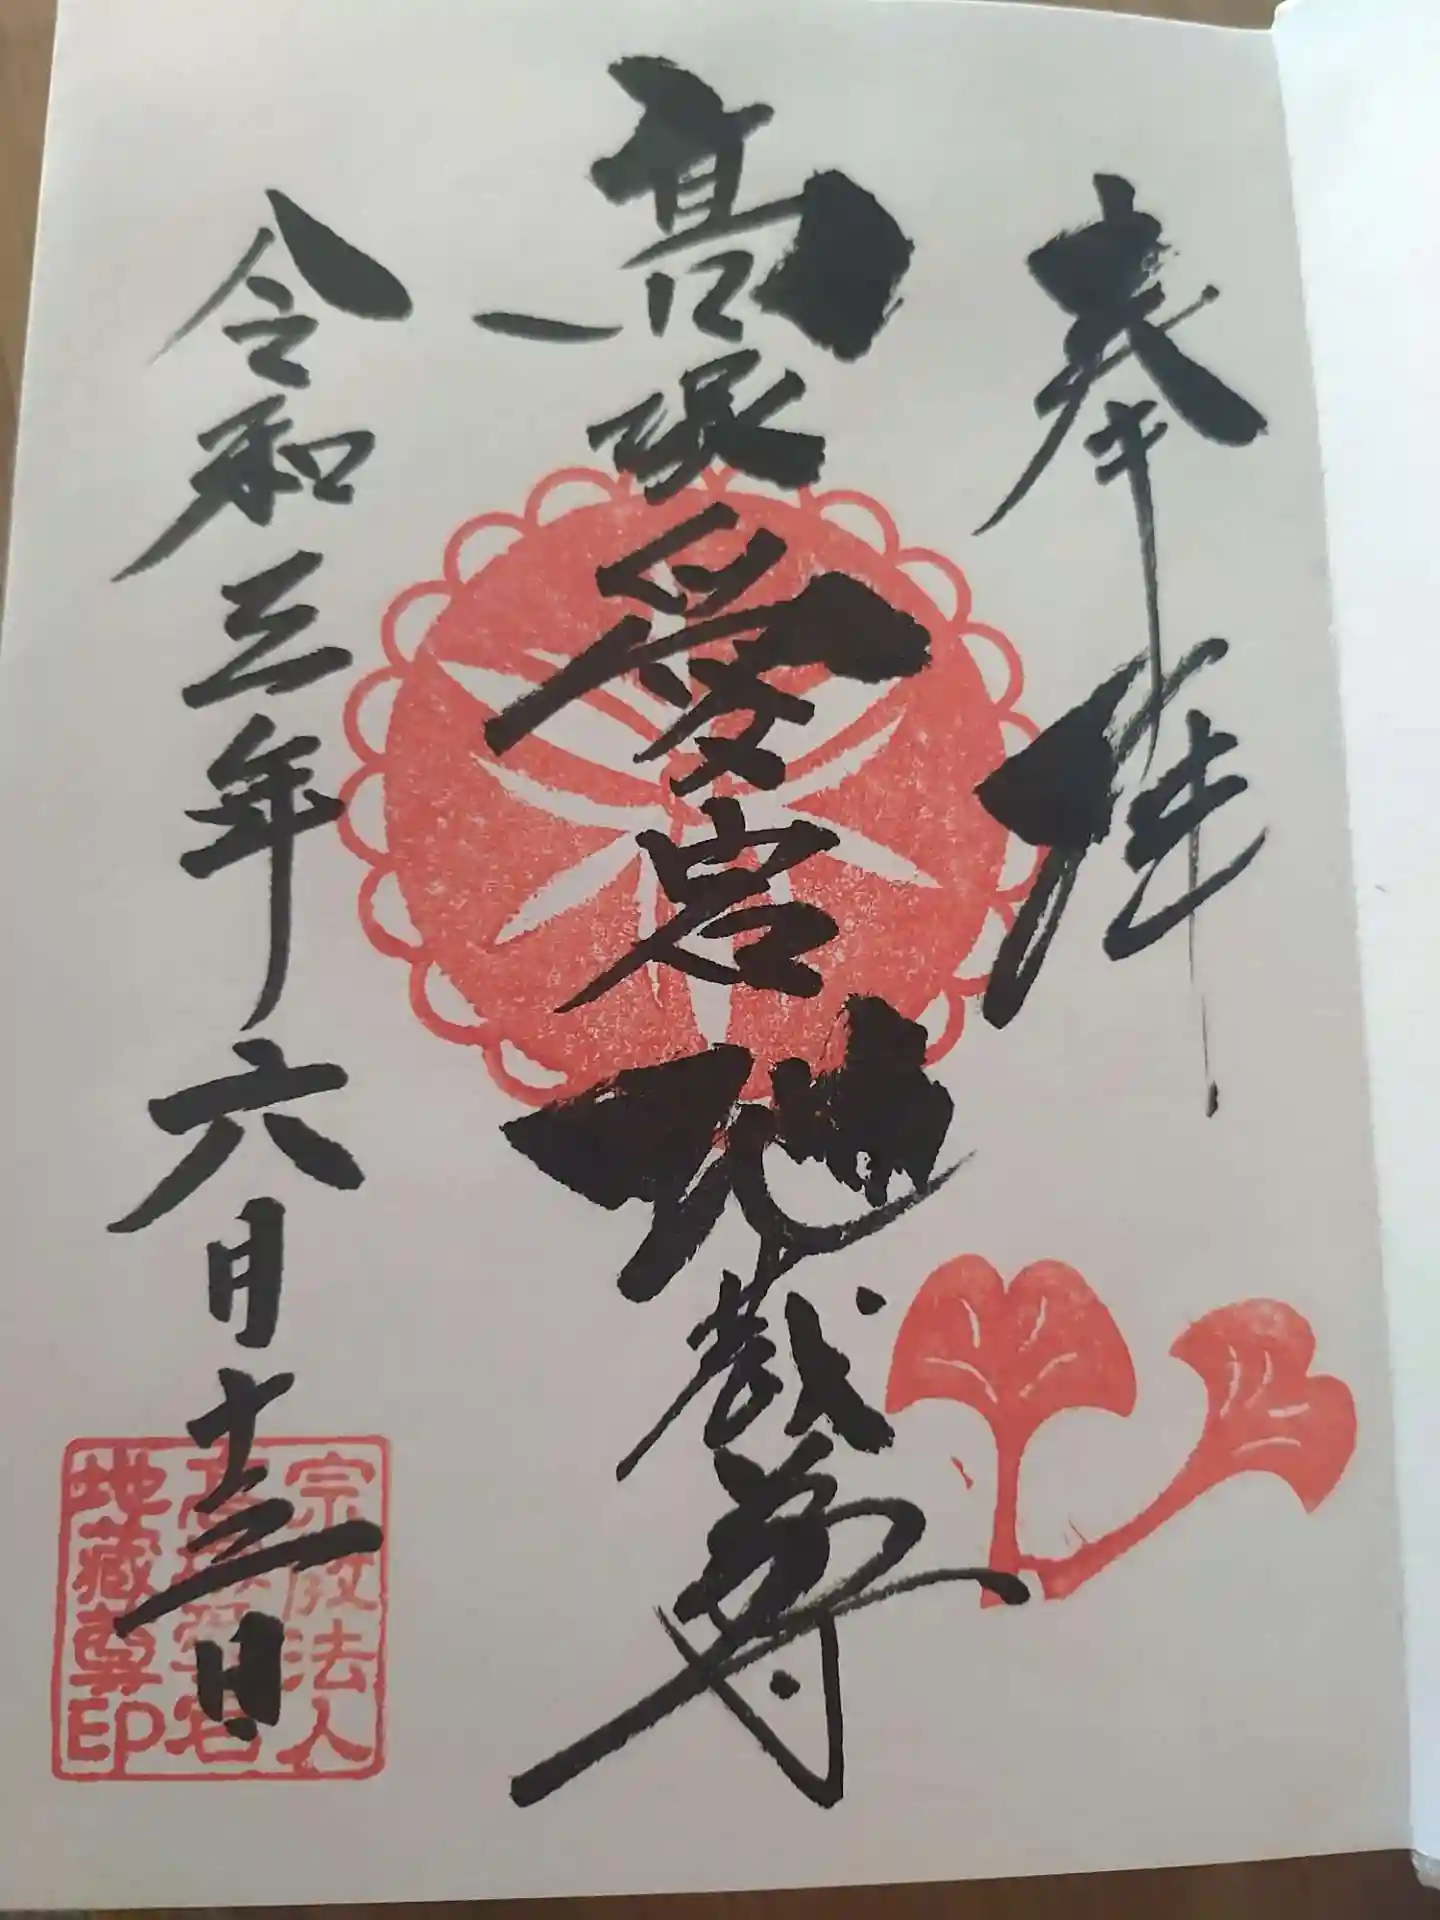 奉拝
高塚愛宕地蔵尊
令和三年六月十三日
宗教法人
高塚愛宕
地蔵尊印